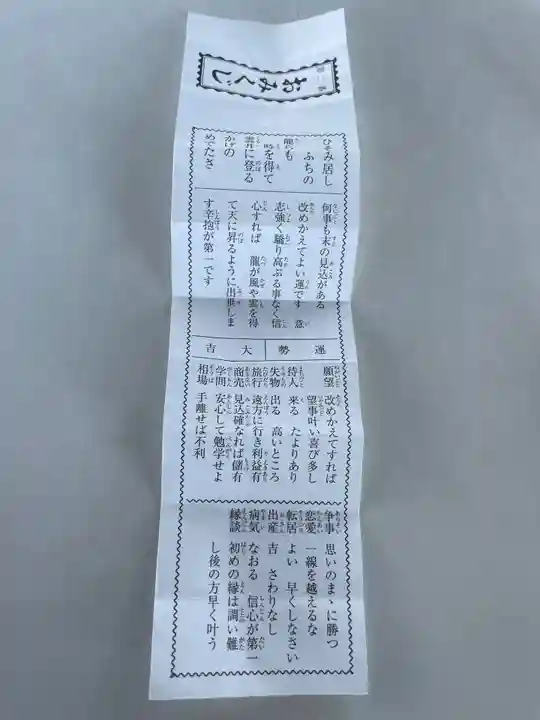 おみくじ
ひそみ居し
ふちの
龍も
時を得て
雲井に登る
かげの
めでたさ
何事も末の見込がある
改めかえてよい運です 意
志強く驕り高ぶる事なく信
心すれば 龍が風や雲を得
て天に昇るように出世しま
す辛抱が第一です
運勢 大吉
願望 改めかえてすれば
望事叶い喜び多し
待人 来る たよりあり
失物 出る 高いところ
旅行 遠方に行き利益有
商売 見込確なれば儲有
学問 安心して勉学せよ
相場 手離せば不利
争事 思いのまゝに勝つ
恋愛 一線を越えるな
転居 よい 早くしなさい
出産 吉 さわりなし
病気 なおる 信心が第一
縁談 初めの縁は調い難
し後の方早く叶う